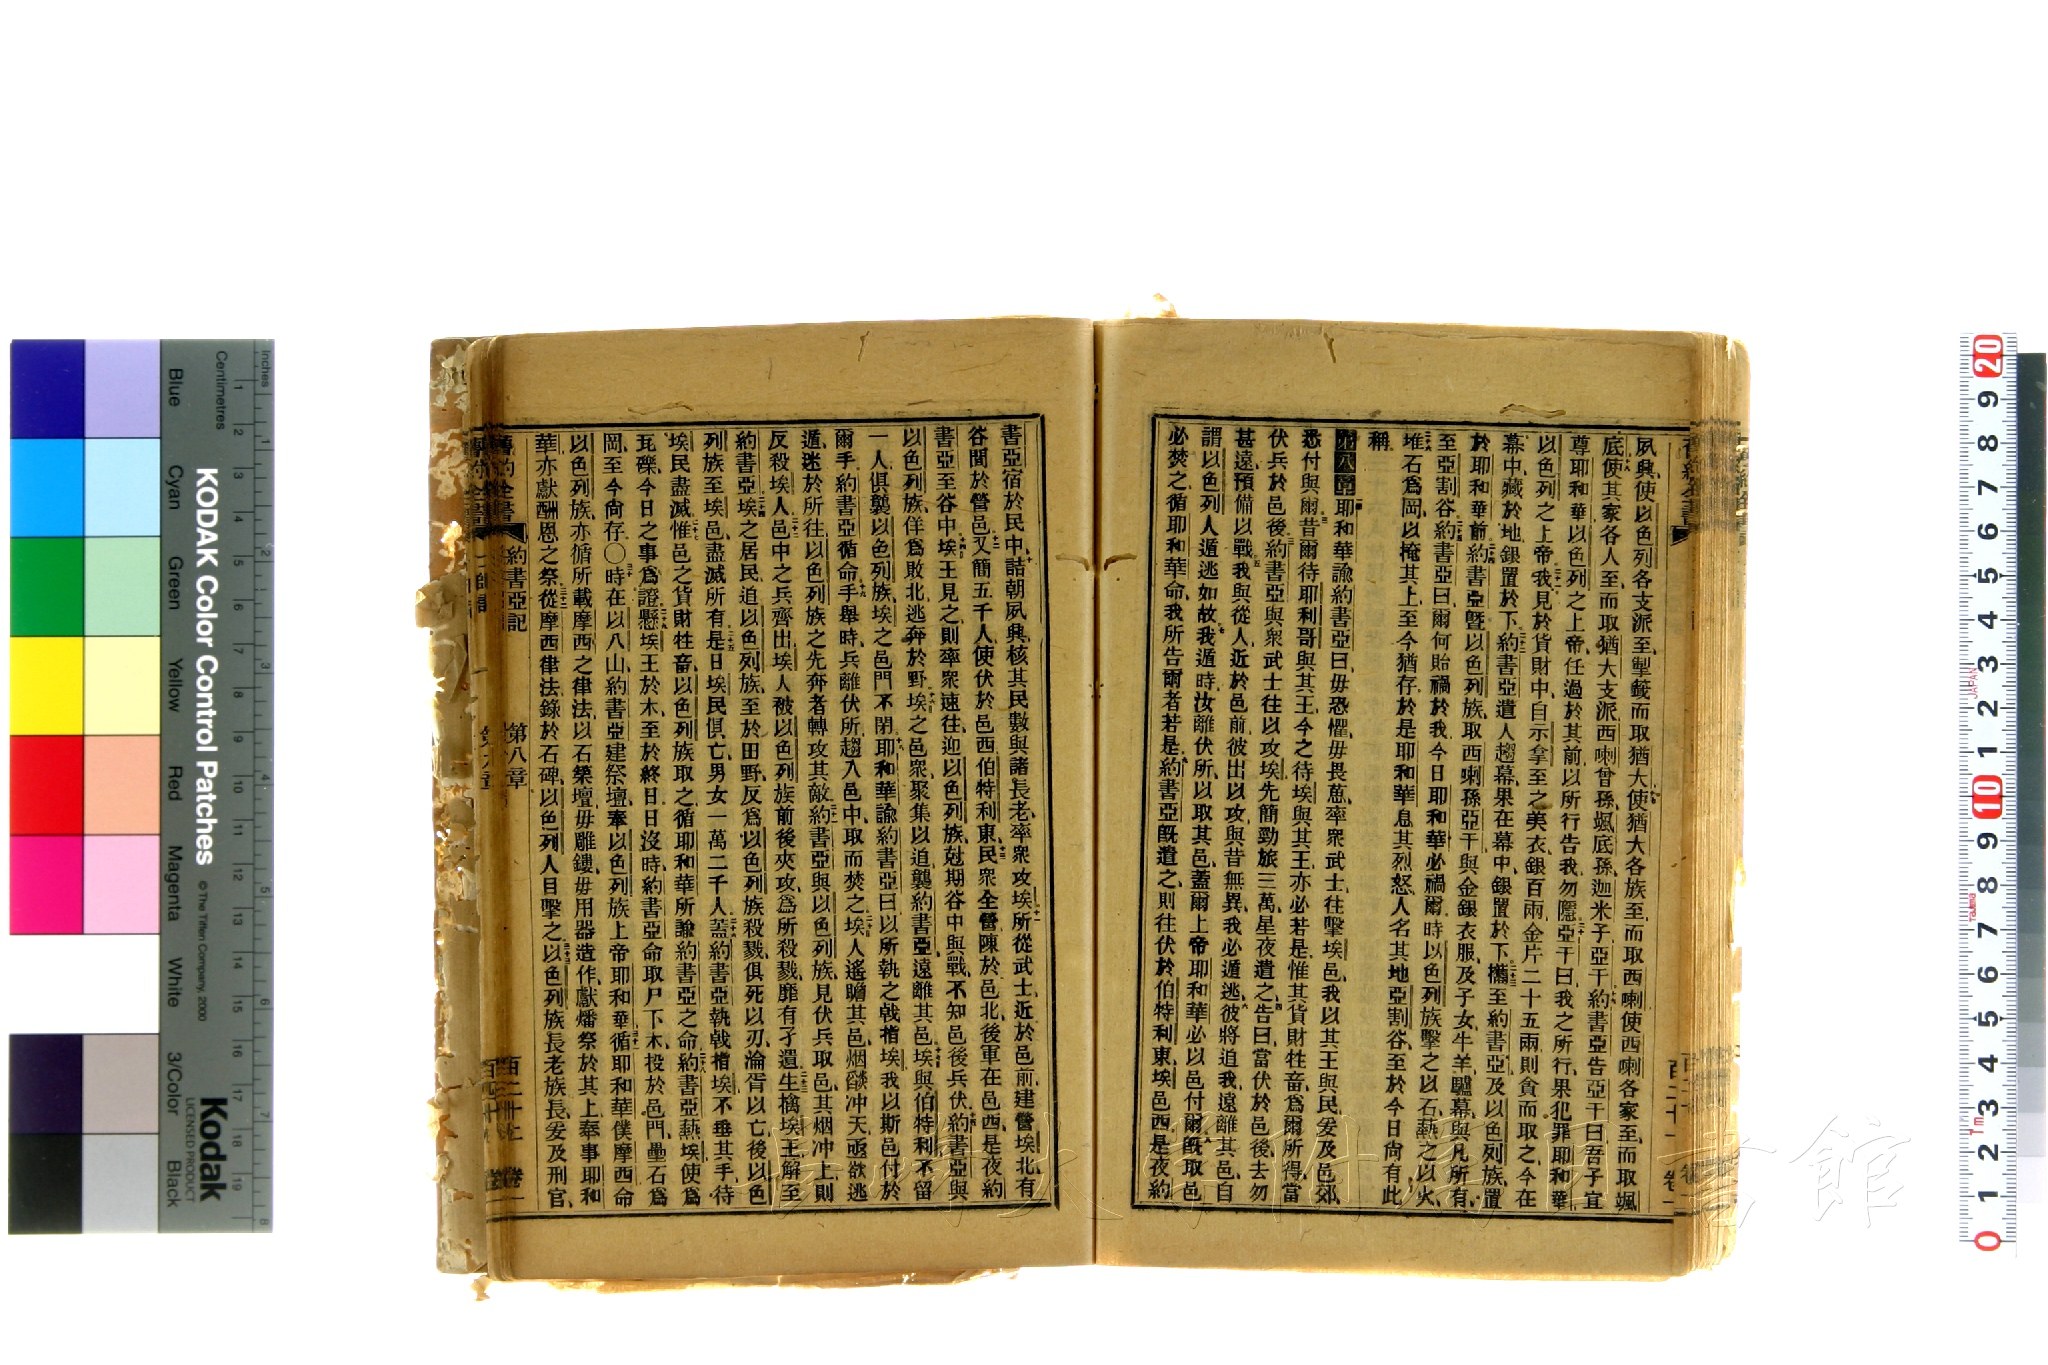 夙興使以色列各支派至掣籤而取猶大使猶大各族至而取西喇使西喇各家至而取颯
底使其家各人至而取猶大支派西喇曾孫颯底孫迦米子亞干約書亞告亞干曰吾子宜
尊耶和華以色列之上帝任過於其前以所行告我勿隱亞干曰我之所行果犯罪耶和華
以色列之上帝我見於貨財中自示拿至之美衣銀百兩金片二十五兩則貪而取之今在
幕中藏於地銀置於下約書亞遣人趨幕果在幕中銀置於下攜至約書亞及以色列族置
於耶和華前約書亞曁以色列族取西喇孫亞干與金銀衣服及子女牛羊驢幕與凡所有
至亞割谷約書亞曰爾何貽禍於我今日耶和華必禍爾時以色列族擊之以石爇之以火
堆石爲岡以掩其上至今猶存於是耶和華息其烈怒人名其地亞割谷至於今日尙有此
稱
第八章耶和華諭約書亞曰毋恐懼毋畏葸率衆武士往擊埃邑我以其王與民爰及邑郊
悉付與爾昔爾待耶利哥與其王今之待埃與其王亦必若是惟其貨財牲畜爲爾所得當
伏兵於邑後約書亞與衆武士往以攻埃先簡勁旅三萬星夜遣之告曰當伏於邑後去勿
甚遠預備以戰我與從人近於邑前彼出以攻與昔無異我必遁逃彼將追我遠離其邑自
謂以色列人遁逃如故我遁時汝離伏所以取其邑蓋爾上帝耶和華必以邑付爾旣取邑
必焚之循耶和華命我所告爾者若是約書亞旣遣之則往伏於伯特利東埃邑西是夜約
書亞宿於民中詰朝夙興核其民數與諸長老率衆攻埃所從武士近於邑前建營埃北有
谷間於營邑又簡五千人使伏於邑西伯特利東民衆全營陳於邑北後軍在邑西是夜約
書亞至谷中埃王見之則率衆速往迎以色列族尅期谷中與戰不知邑後兵伏約書亞與
以色列族佯爲敗北逃奔於野埃之邑衆聚集以追襲約書亞遠離其邑埃與伯特利不留
一人俱襲以色列族埃之邑門不閉耶和華諭約書亞曰以所執之戟指埃我以斯邑付於
爾手約書亞循命手舉時兵離伏所趨入邑中取而焚之埃人遙瞻其邑烟燄冲天亟欲逃
遁迷於所往以色列族之先奔者轉攻其敵約書亞與以色列族見伏兵取邑其烟冲上則
反殺埃人邑中之兵齊出埃人被以色列族前後夾攻爲所殺戮靡有孑遺生擒埃王解至
約書亞埃之居民追以色列族至於田野反爲以色列族殺戮俱死以刃淪胥以亡後以色
列族至埃邑盡滅所有是日埃民俱亡男女一萬二千人蓋約書亞執戟指埃不垂其手待
埃民盡滅惟邑之貨財牲畜以色列族取之循耶和華所諭約書亞之命約書亞爇埃使爲
瓦礫今日之事爲證懸埃王於木至於終日日沒時約書亞命取尸下木投於邑門壘石爲
岡至今尙存〇時在以八山約書亞建祭壇奉以色列族上帝耶和華循耶和華僕摩西命
以色列族亦循所載摩西之律法以石築壇毋雕鏤毋用器造作獻燔祭於其上奉事耶和
華亦獻酬恩之祭從摩西律法錄於石碑以色列人目擊之以色列族長老族長爰及刑官
舊約全書 約書亞記 第八章 百二十七 卷一
KODAK Color Control Patches
© The Tiffen Company, 2000
Kodak
LICENSED PRODUCT
Inches
Centimetres
Blue Cyan Green Yellow Red Magenta White 3/Color Black